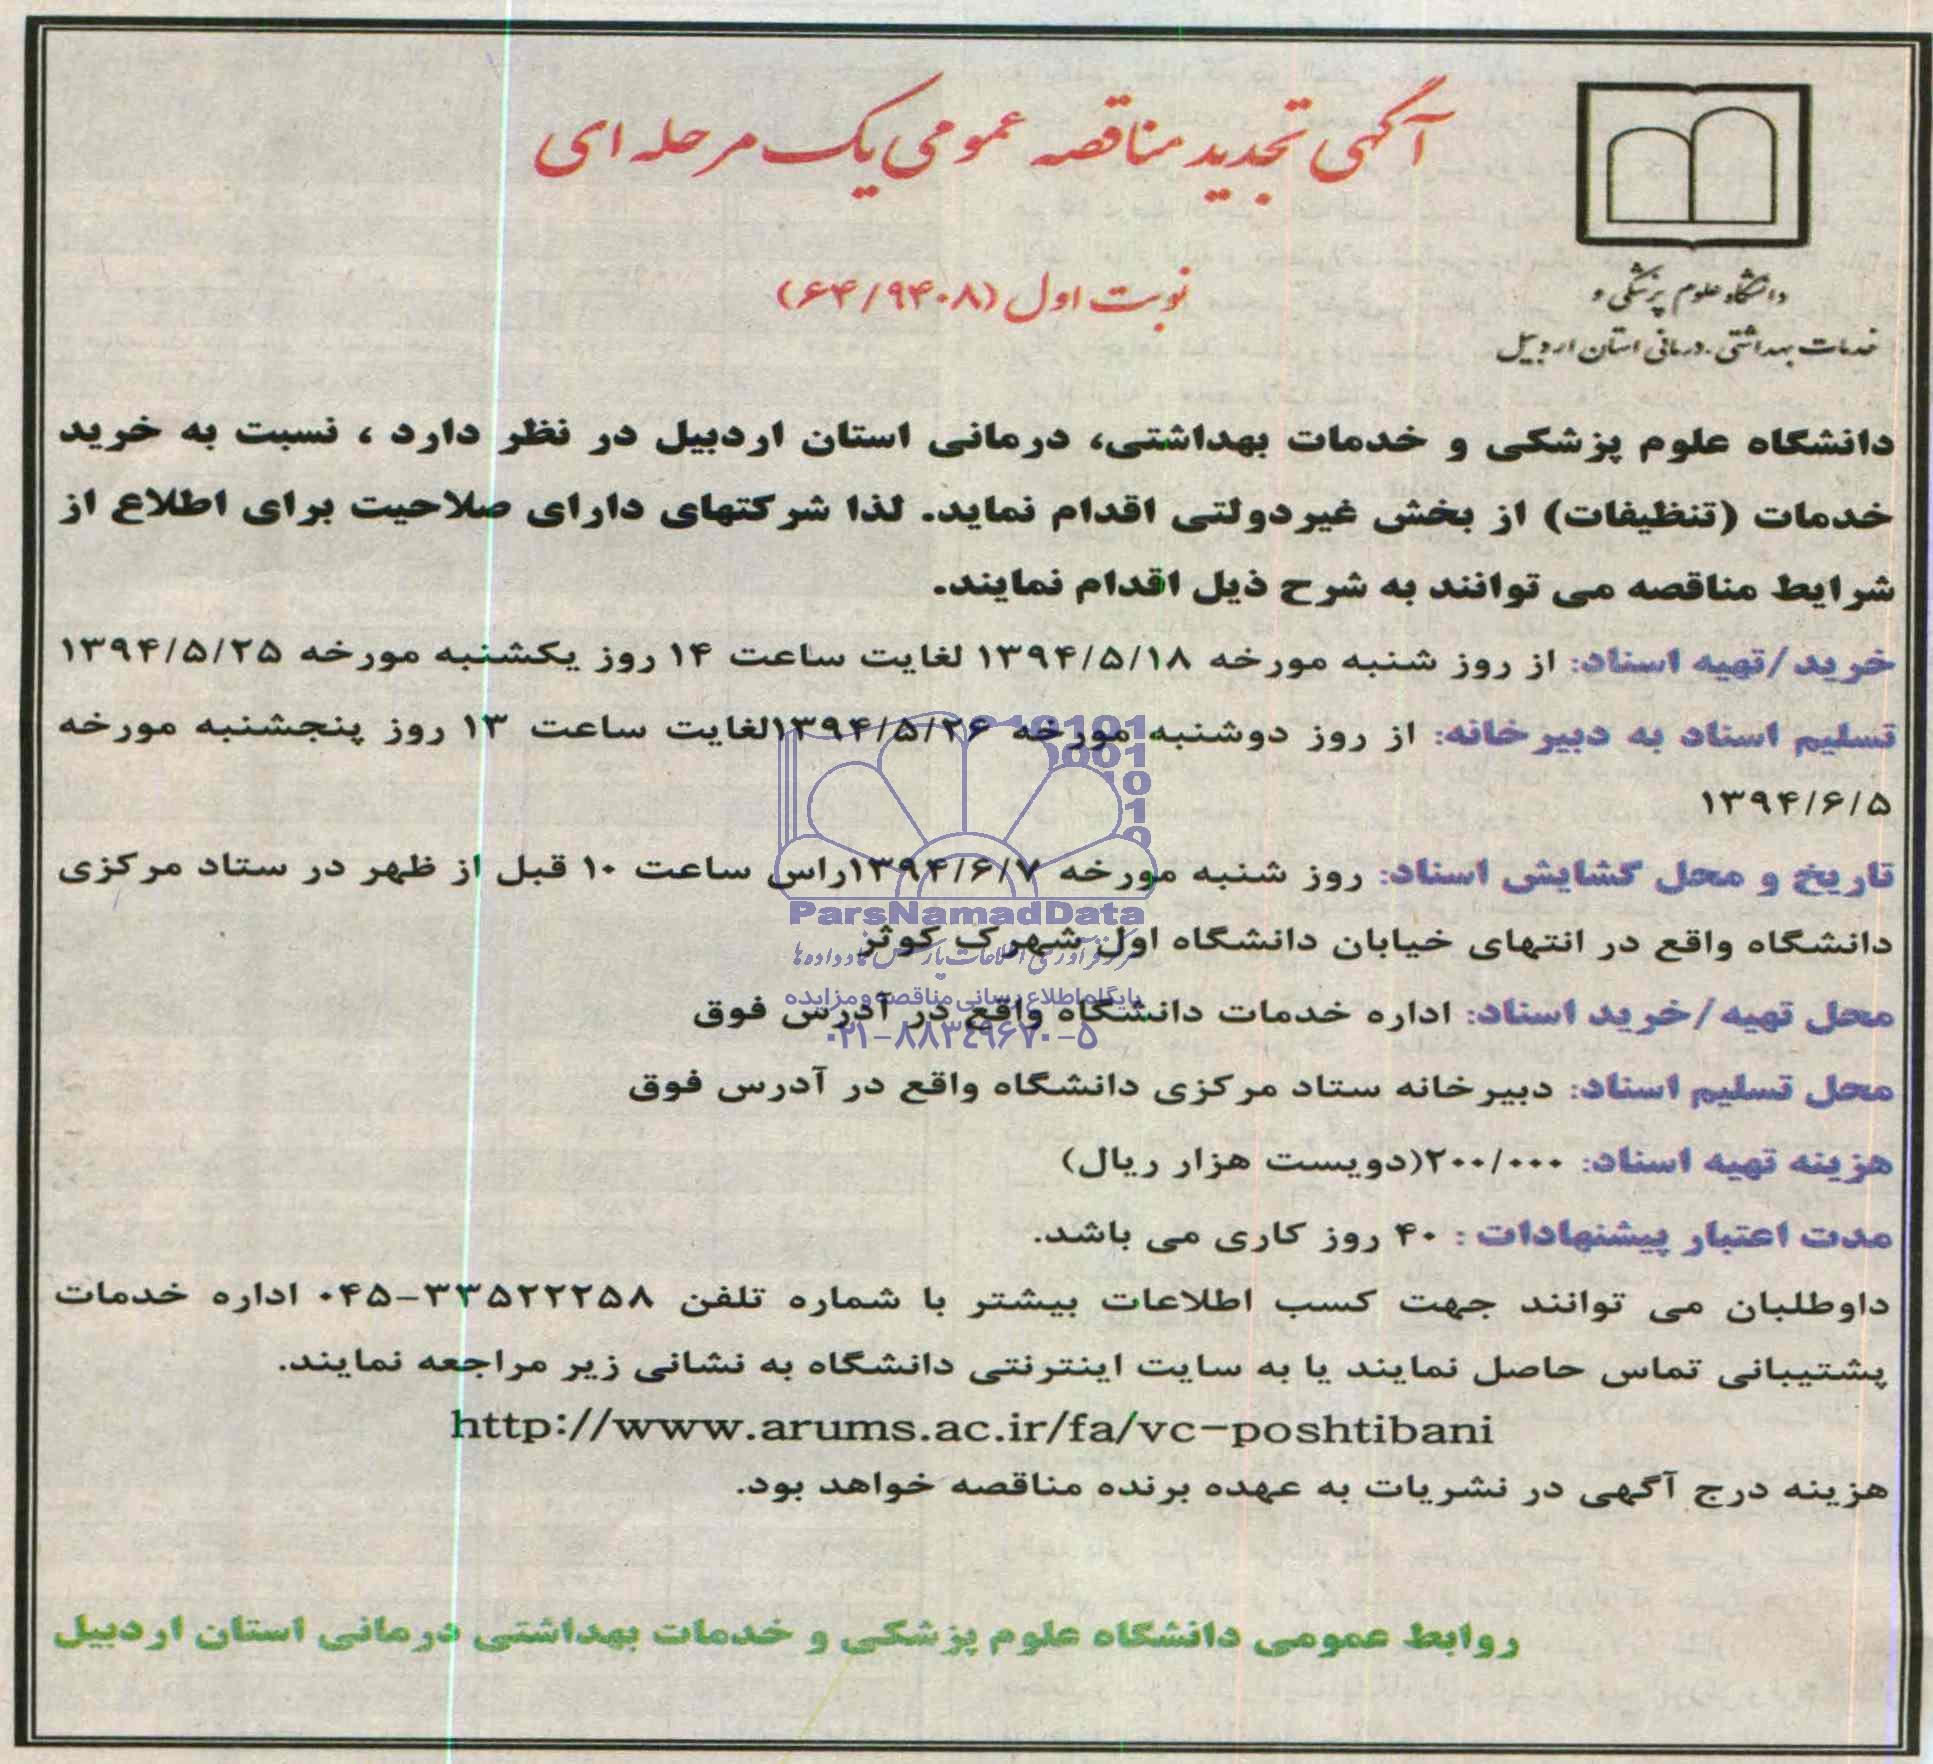 آگهی تجدید مناقصه عمومی یک مرحله ای
نوبت اول (۶۴/۹۴۰۸)
دانشگاه علوم پزشکی و
خدمات بهداشتی، درمانی استان اردبیل
دانشگاه علوم پزشکی و خدمات بهداشتی، درمانی استان اردبیل در نظر دارد ، نسبت به خرید
خدمات (تنظیفات) از بخش غیردولتی اقدام نماید. لذا شرکتهای دارای صلاحیت برای اطلاع از
شرایط مناقصه می توانند به شرح ذیل اقدام نمایند.
خرید/تهیه اسناد: از روز شنبه مورخه ۱۳۹۴/۵/۱۸ لغایت ساعت ۱۴ روز یکشنبه مورخه ۱۳۹۴/۵/۲۵
تسلیم اسناد به دبیرخانه: از روز دوشنبه مورخه ۱۳۹۴/۵/۲۶لغایت ساعت ۱۳ روز پنجشنبه مورخه
۱۳۹۴/۶/۵
تاریخ و محل گشایش اسناد: روز شنبه مورخه ۱۳۹۴/۶/۷راس ساعت ۱۰ قبل از ظهر در ستاد مرکزی
دانشگاه واقع در انتهای خیابان دانشگاه اول شهرک کوثر
محل تهیه/خرید اسناد: اداره خدمات دانشگاه واقع در آدرس فوق
محل تسلیم اسناد: دبیرخانه ستاد مرکزی دانشگاه واقع در آدرس فوق
هزینه تهیه اسناد: ۲۰۰/۰۰۰(دویست هزار ریال)
مدت اعتبار پیشنهادات : ۴۰ روز کاری می باشد.
داوطلبان می توانند جهت کسب اطلاعات بیشتر با شماره تلفن ۳۳۵۲۲۲۵۸-۰۴۵ اداره خدمات
پشتیبانی تماس حاصل نمایند یا به سایت اینترنتی دانشگاه به نشانی زیر مراجعه نمایند.
http://www.arums.ac.ir/fa/vc-poshtibani
هزینه درج آگهی در نشریات به عهده برنده مناقصه خواهد بود.
روابط عمومی دانشگاه علوم پزشکی و خدمات بهداشتی درمانی استان اردبیل
ParsNamadData
مرکز فرآوری اطلاعات پارس نماد داده ها
پایگاه اطلاع رسانی مناقصه و مزایده
۰۲۱-۸۸۳۴۹۶۷۰-۵